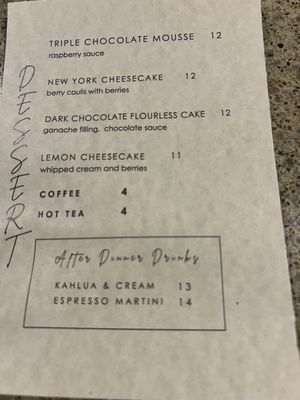 DESSERT
TRIPLE CHOCOLATE MOUSSE 12
raspberry sauce
NEW YORK CHEESECAKE 12
berry coulis with berries
DARK CHOCOLATE FLOURLESS CAKE 12
ganache filling, chocolate sauce
LEMON CHEESECAKE 11
whipped cream and berries
COFFEE 4
HOT TEA 4
After Dinner Drinks
KAHLUA & CREAM 13
ESPRESSO MARTINI 14